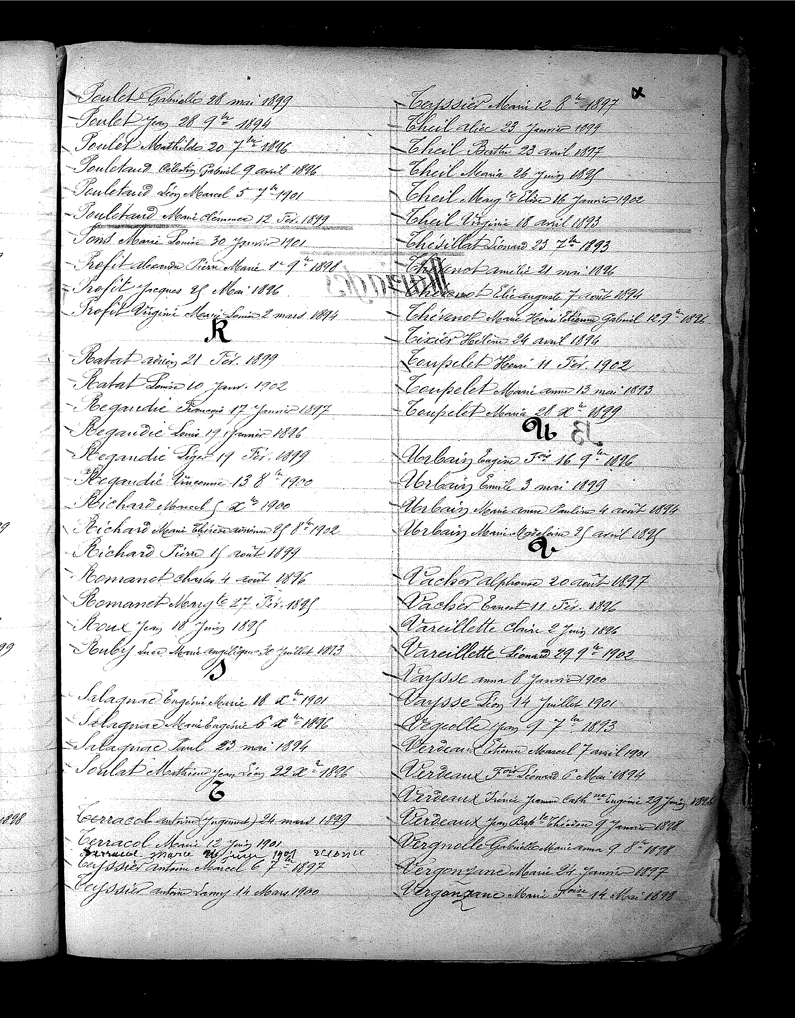 Poulet Gabrielle 28 mai 1899
Poulet Jean 28 9bre 1894
Poulet Mathilde 20 7bre 1896
Pouletaud Célestin Gabriel 9 avril 1896
Pouletaud Léon Marcel 5 7bre 1901
Pouletaud Marie Clémence 12 Fév. 1899
Pons Marie Louise 30 Janvier 1901
Profit Alexandre Pierre Marie 1er 9bre 1896
Profit Jacques 25 Mai 1896
Profit Virginie Marie Louise 2 mars 1894
R
Ratat adrien 21 Fév. 1899
Ratat Louise 10 Janv. 1902
Regaudie François 17 Janvier 1897
Regaudie Louis 19 Janvier 1896
Regaudie Léger 19 Fév. 1899
Regaudie 13 8bre 1900
Richard Marcel 5 Xbre 1900
Richard Marie Thérèse 25 8bre 1902
Richard Pierre 15 août 1899
Romanet Charles 4 août 1896
Romanet Margte 27 Fév. 1895
Roux Jean 18 Juin 1895
Ruby Marie angélique 30 Juillet 1893
S
Salagnac Eugénie Marie 18 Xbre 1901
Salagnac Marie Eugénie 6 Xbre 1896
Salagnac Paul 23 mai 1894
Soulat Mathieu Jean Léon 22 Xbre 1896
T
Terracol antoine 24 mars 1899
Terracol Marie 12 Juin 1901
Terracol Marie juin 1901
Teyssier antoine Marcel 6 7bre 1897
Teyssier antoine 14 Mars 1900
Teyssier Marie 12 8bre 1897
Theil alice 23 Janvier 1899
Theil Berthe 23 avril 1897
Theil Maria 26 Juin 1895
Theil Margte Elise 16 Janvier 1902
Theil Virginie 18 avril 1893
Thésillat Léonard 23 7bre 1893
Thévenot amélie 21 mai 1896
Thévenot Elie auguste 7 août 1894
Thévenot Marie Henri Etienne Gabriel 12 9bre 1896
Tixier Hélène 24 avril 1894
Toupelet Henri 11 Fév. 1902
Toupelet Marie anne 13 mai 1893
Toupelet Maria 28 Xbre 1899
U
Urbain Eugène Fois 16 9bre 1896
Urbain Emile 3 mai 1899
Urbain Marie anne Pauline 4 août 1894
Urbain Marie Madeleine 25 avril 1895
V
Vacher alphonse 20 août 1897
Vacher Ernest 11 Fév. 1896
Vareillette Claire 2 Juin 1896
Vareillette Léonard 29 9bre 1902
Vaysse anna 8 Janvier 1900
Vaysse Léon 14 Juillet 1901
Vergnolle Jean 9 7bre 1893
Verdeaux Etienne Marcel 7 avril 1901
Verdeaux Fois Léonard 6 Mai 1894
Verdeaux Irénée Jeanne Cathne Eugénie 29 Juin 1896
Verdeaux Jean Bapte Théodore 9 Janvier 1898
Vergnolle Gabrielle Marie anna 9 8bre 1898
Vergonzane Marie 24 Janvier 1897
Vergonzane Marie Foise 14 Mai 1898